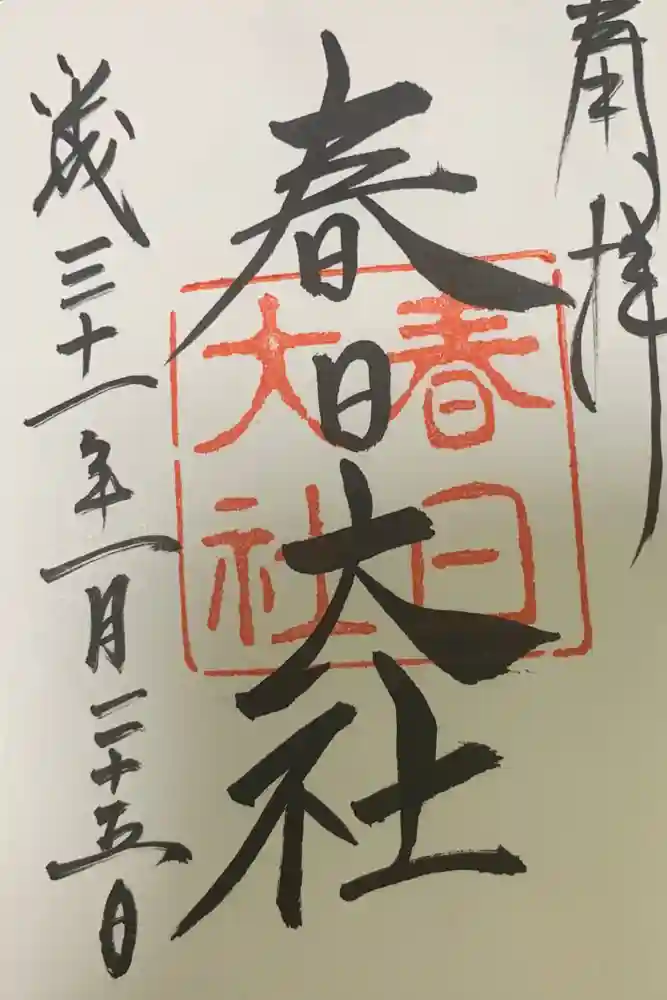 奉拝
春日大社
春日
大社
平成三十一年一月二十五日